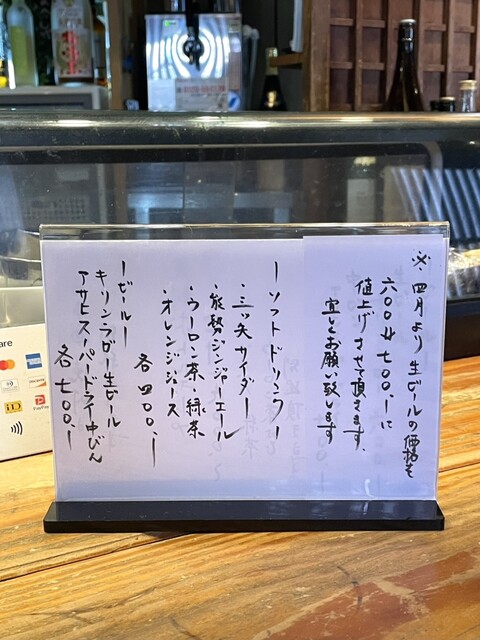 ※四月より生ビールの価格を
六〇〇より七〇〇.ーに
値上げさせて頂きます。
宜しくお願い致します
ーソフトドリンクー
・三ツ矢サイダー
・能勢ジンジャーエール
・ウーロン茶・緑茶
・オレンジジュース
各四〇〇.ー
ービールー
キリンラガー生ビール
アサヒスーパードライ中びん
各七〇〇.ー
are
iD
PayPay